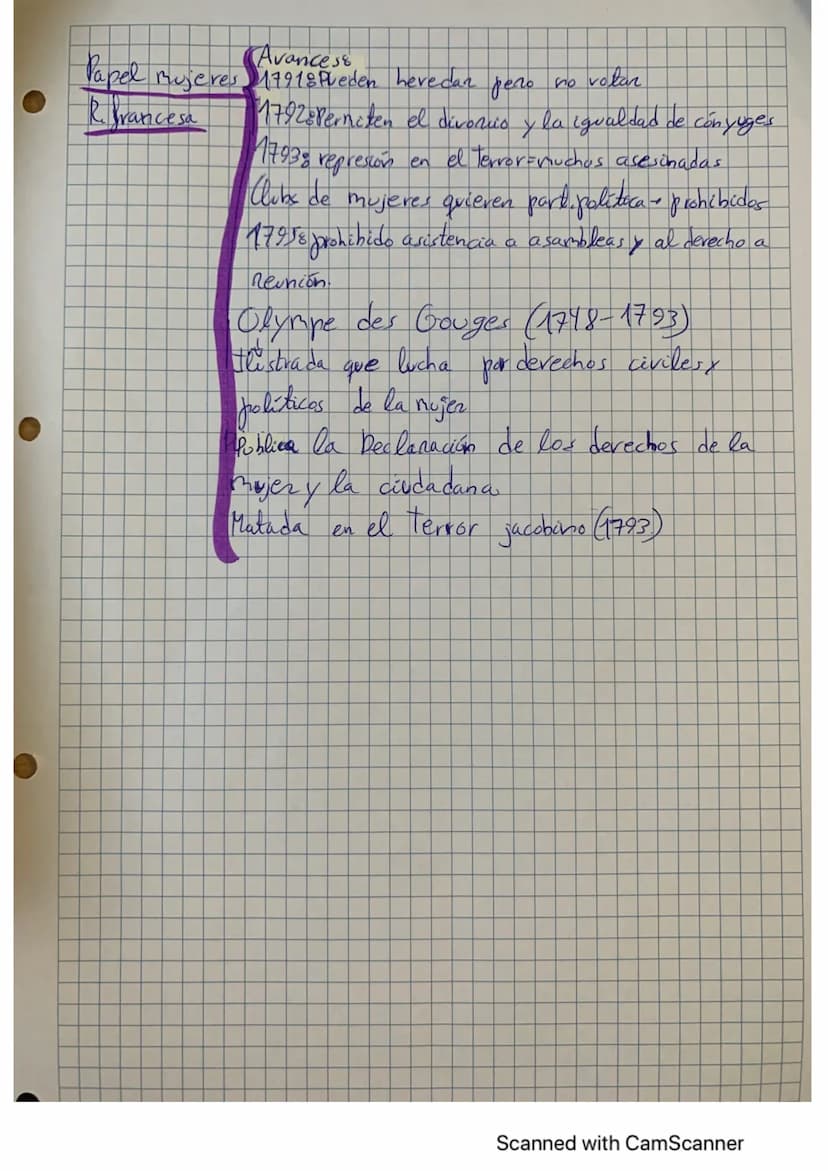 Papel mujeres
R. francesa
Avances:
1791: Pueden heredar pero no votar
1792: Permiten el divorcio y la igualdad de cónyuges
1793: represión en el Terror=muchas asesinadas
Clubs de mujeres quieren part.política→ prohibidos
1795: prohibido asistencia a asambleas y al derecho a
reunión.
Olympe des Gouges (1748-1793)
Ilustrada que lucha por derechos civiles y
políticos de la mujer
Publica la Declaración de los derechos de la
mujer y la ciudadana
Matada en el Terror jacobino (1793)
Scanned with CamScanner